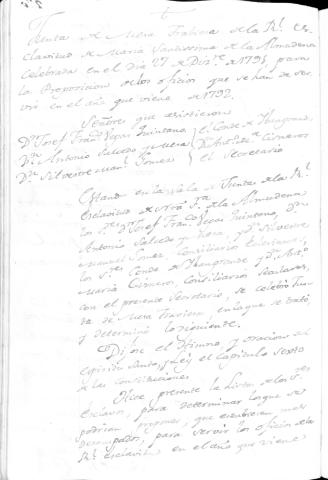 Junta de Mesa Traviesa de la Rl. Es-
clavitud de Maria Santissima de la Almudena
celebrada en el dia 27 de Dizre. de 1791, para
la Proposicion de los oficios que se han de ser-
vir en el año que viene de 1792.
Señores que asistieron
Dn. Josef Franco. Vegas Quintano
Dn. Antonio Salcedo y Mesa
Dn. Silvestre Manl. Gomez
el Conde de
Dn. Anto. Ma. Cisneros
el Secretario
Estando en la Sala de Junta de la Rl.
Esclavitud de Ntra. Sra. de la Almudena
los Sres. Dn. Josef Franco. Vegas Quintano, Dn.
Antonio Salcedo y Mesa, y Dn. Silvestre
Manuel Gomez, Consiliarios Eclesiasticos,
los Sres. Conde de y Dn. Anto.
Maria Cisneros, Consiliarios Seculares,
con el presente Secretario, se celebró Jun-
ta de Mesa Traviesa, en la que se trató
y determinó lo siguiente.
Dijose el Himno, y oracion del
Espiritu Santo, y Ley el Capitulo Sexto
de las Constituciones
Hice presente la Lista de los Sres.
Esclavos, para determinar los que se
podrian proponer, que estubiesen mas
desocupados, para servir los oficios de la
Rl. Esclavitud en el año que viene